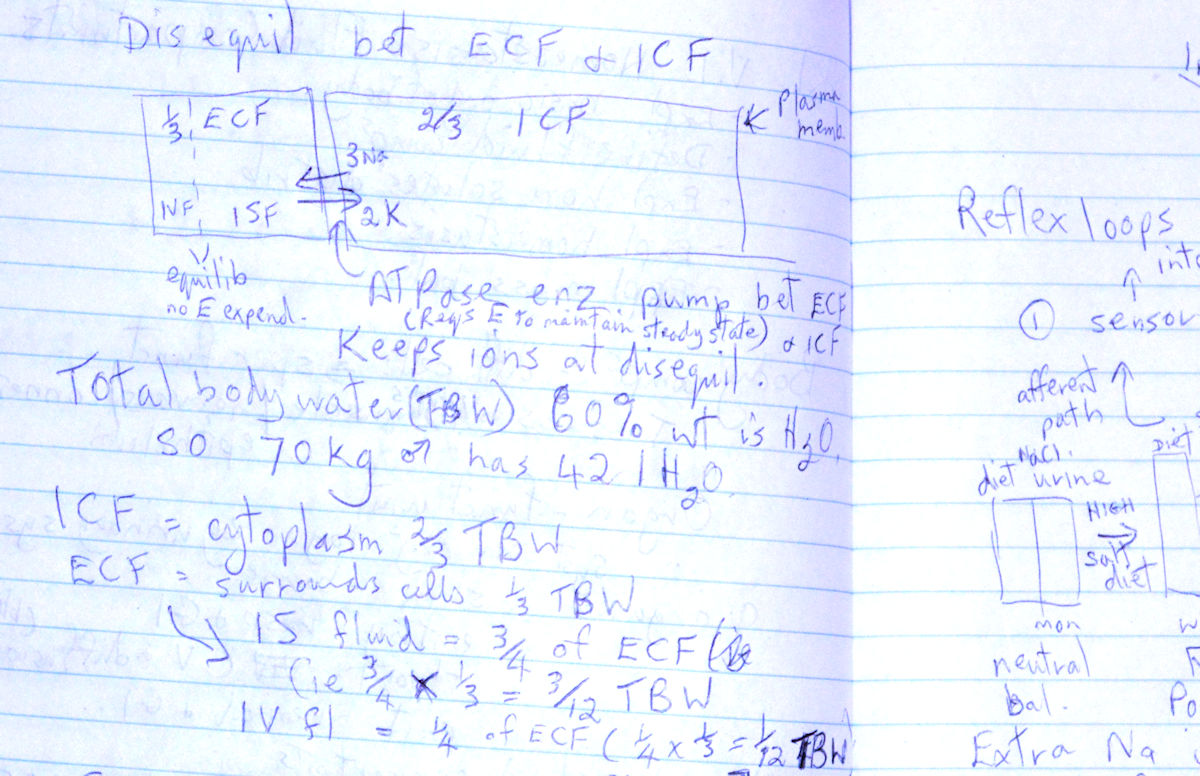 Disequil bet ECF & ICF
1/3 ECF
2/3 ICF
Plasma
memb.
3Na
IVF ISF
2K
equilib
no E expend.
ATPase enz pump bet ECF
(Reqs E to maintain steady state) & ICF
Keeps ions at disequil.
Total body water (TBW) 60% wt is H2O.
So 70kg ♂ has 42 l H2O.
ICF = cytoplasm 2/3 TBW
ECF = surrounds cells 1/3 TBW
IS fluid = 3/4 of ECF (
(ie 3/4 x 1/3 = 3/12 TBW
IV fl = 1/4 of ECF (1/4 x 1/3 = 1/12 TBW
Reflex loops
① sensor
afferent
path
NaCl.
diet urine
Diet
HIGH
salt
diet
mon
neutral
bal.
Extra Na